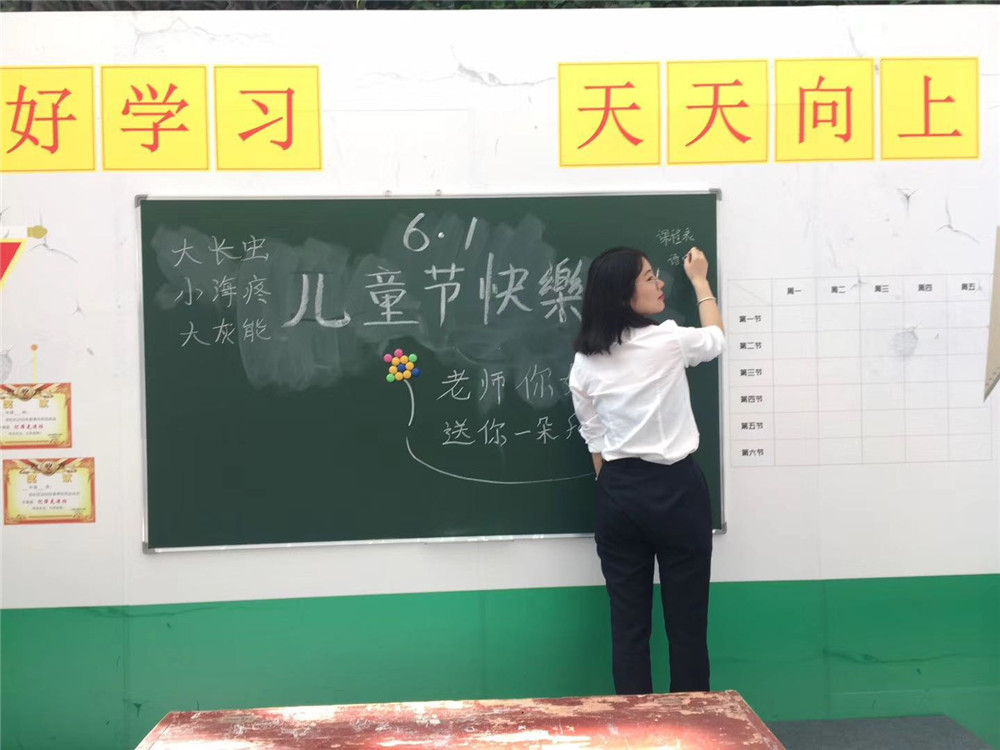 好 学 习 天 天 向 上
6·1
儿童节快樂
大长虫
小海疼
大灰能
老师你
送你一朵
课程表
语
周一 周二 周三 周四 周五
第一节
第二节
第三节
第四节
第五节
第六节